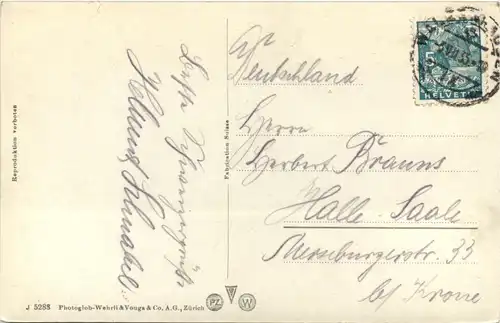 Reproduktion verboten
Beste Schweizergrüße
Helmut Schnabel.
Fabrication Suisse
Deutschland
Herrn
Herbert Brauns
Halle-Saale
Merseburgerstr. 33
b/ Krone
5
HELVETIA
J 5283 Photoglob-Wehrli & Vouga & Co. A.G., Zürich
PZ
W